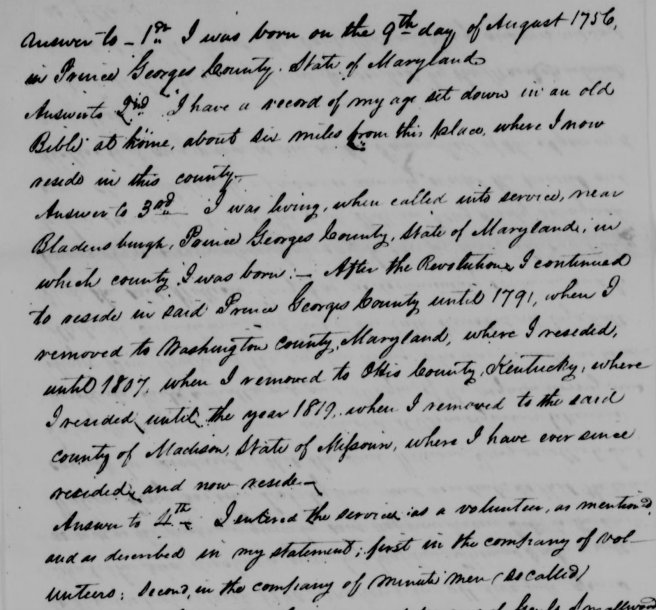 Answer to - 1st. I was born on the 9th day of August 1756,
in Prince Georges County. State of Maryland
Answer to 2nd I have a record of my age set down in an old
Bible at home, about six miles from this place, where I now
reside in this county.
Answer to 3rd I was living, when called into service, near
Bladensburgh, Prince Georges County, State of Maryland, in
which county I was born. - After the Revolution I continued
to reside in said Prince Georges County until 1791, when I
removed to Washington County, Maryland, where I resided,
until 1807, when I removed to Ohio County, Kentucky, where
I resided until the year 1819, when I removed to the said
county of Madison, State of Missouri, where I have ever since
resided, and now reside -
Answer to 4th - I entered the service as a volunteer, as mentioned,
and as described in my statement; first in the company of vol-
unteers; Second, in the company of minute men (so called)